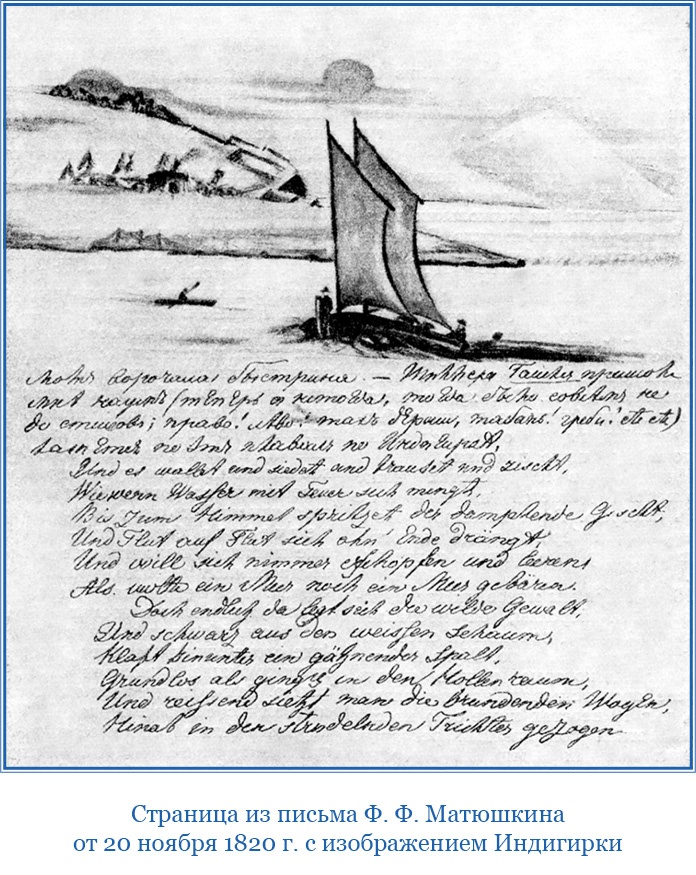 ворочала быстрина. —
мнѣ на умъ (теперь тогда было совсѣмъ не
до стиховъ; право! лѣво! такъ держи, табань! греби! etc etc)
по Индигиркѣ,
Und es wallet und siedet und brauset und zischt,
Wie wenn Wasser mit Feuer sich mengt,
Bis zum Himmel spritzet der dampfende Gischt,
Und Flut auf Flut sich ohn' Ende drängt,
Und will sich nimmer erschopfen und leeren
Als wollte ein Meer noch ein Meer gebären.
Doch endlich da legt sich die wilde Gewalt,
Und schwarz aus den weissen Schaum,
Klaft hinunter ein gähnender Spalt,
Grundlos als gings in den Hollenraum,
Und reissend sieht man die brandenden Wogen,
Hinab in den strudelnden Trichter gezogen
Страница из письма Ф. Ф. Матюшкина
от 20 ноября 1820 г. с изображением Индигирки